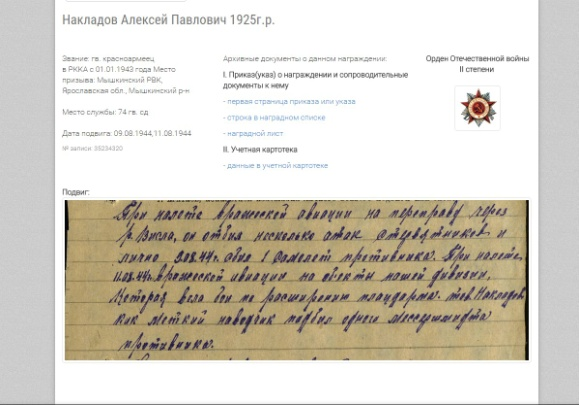 Накладов Алексей Павлович 1925г.р.
Звание: гв. красноармеец
в РККА с 01.01.1943 года Место
призыва: Мышкинский РВК,
Ярославская обл., Мышкинский р-н
Место службы: 74 гв. сд
Дата подвига: 09.08.1944,11.08.1944
№ записи: 35234320
Архивные документы о данном награждении:
I. Приказ(указ) о награждении и сопроводительные
документы к нему
- первая страница приказа или указа
- строка в наградном списке
- наградной лист
II. Учетная картотека
- данные в учетной картотеке
Орден Отечественной войны
II степени
Подвиг:
При налете вражеской авиации на переправу через
р. Висла, он отбил несколько атак стервятников и
лично сбил 1 самолет противника. При налете
вражеской авиации на объекты нашей дивизии,
Которая вела бои по расширению плацдарма. тов. Накладов
как меткий наводчик подбил одного Мессершмидта
противника.